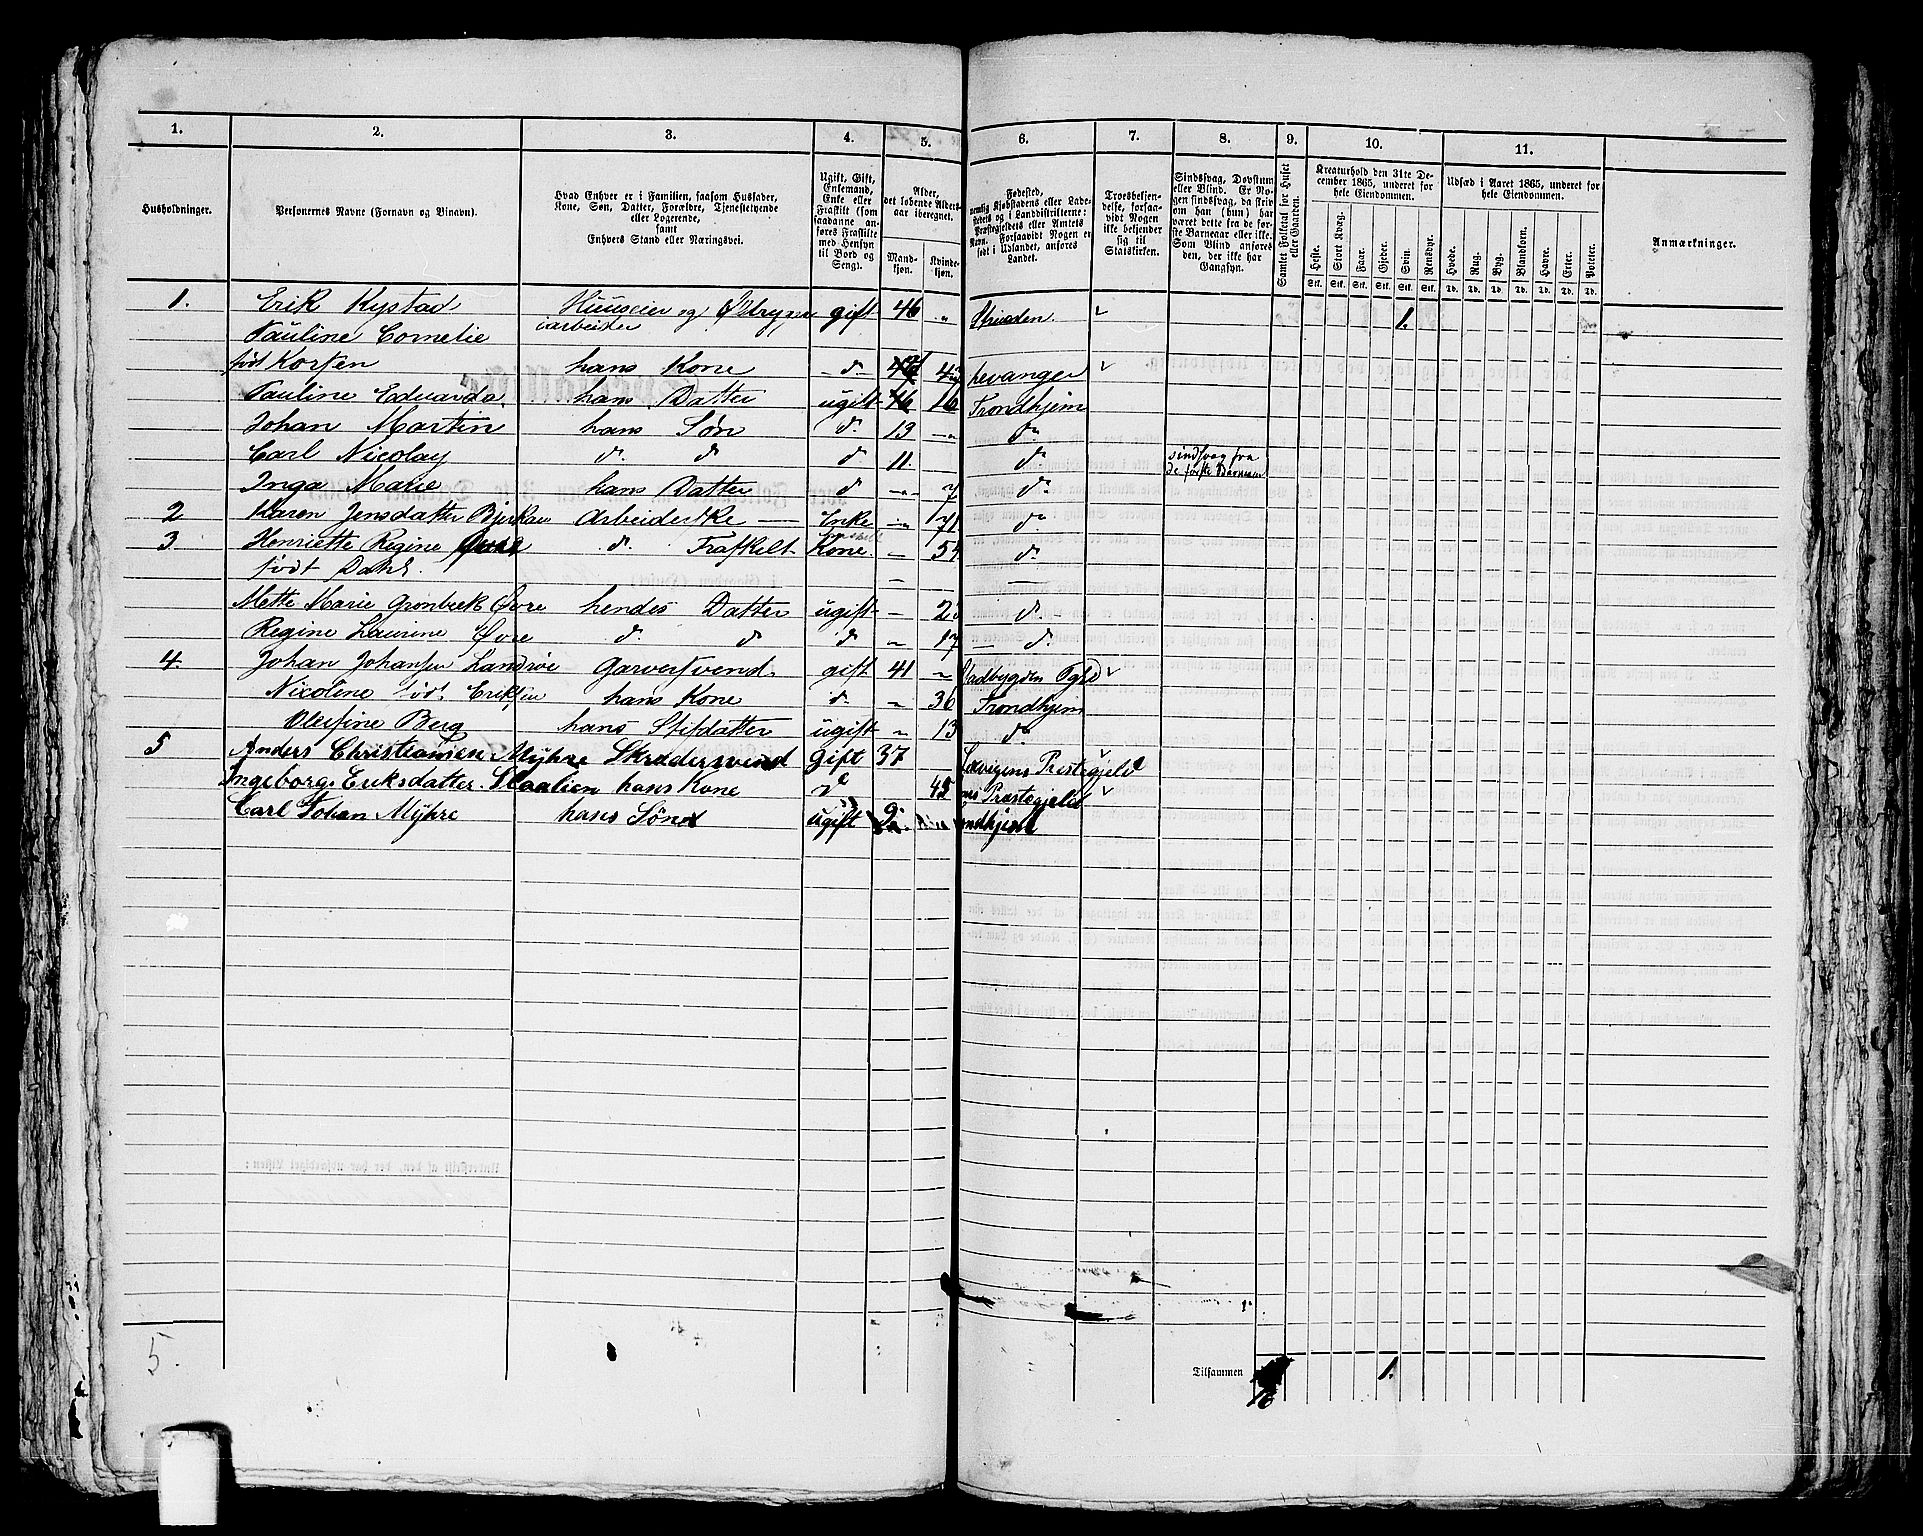 1. 2. 3. 4. 5. 6. 7. 8. 9. 10. 11.
Husholdninger.
Personernes Navne (Fornavn og Binavn).
Hvad Enhver er i Familien, saasom Husfader,
Kone, Søn, Datter, Forældre, Tjenestetyende
eller Logerende,
samt
Enhvers Stand eller Næringsvei.
Ugift, Gift,
Enkemand,
Enke eller
Fraskilt (som
saadanne an-
føres Fraskilte
med Hensyn
til Bord og
Seng).
Alder,
det løbende Alders-
aar iberegnet.
Mand-
kjøn.
Kvinde-
kjøn.
Fødested,
nemlig Kjøbstadens eller Lade-
stedets og i Landdistrikterne:
Præstegjeldets eller Amtets
Navn. Forsaavidt Nogen er
født i Udlandet, anføres
Landet.
Troesbekjen-
delse, forsaa-
vidt Nogen
ikke bekjender
sig til
Statskirken.
Sindssvag, Døvstum
eller Blind. Er No-
gen sindssvag, da skriv
om han (hun) har
været dette fra de før-
ste Barneaar eller ikke.
Som Blind anføres
den, der ikke har
Gangsyn.
Samlet Folketal for Huset
eller Gaarden.
Kreaturhold den 31te De-
cember 1865, underet for
hele Eiendommen.
Heste. Stort Kvæg. Faar. Gjeder. Svin. Rensdyr.
Stk. Stk. Stk. Stk. Stk. Stk.
Udsæd i Aaret 1865, underet for
hele Eiendommen.
Hvede. Rug. Byg. Blandkorn. Havre. Erter. Poteter.
Td. Td. Td. Td. Td. Td. Td.
Anmærkninger.
1. Erik Rystad Huuseier og gift 46 " Strinden 1.
arbeider
Pauline Cornelie
født Korsen hans Kone d° Levanger
Pauline Eduarda hans Datter ugift 16 Trondhjem
Johan Martin hans Søn d° 13 d°
Carl Nicolay d° d° d° 11 d° sindsvag fra
de første Barneaar
Inga Marie hans Datter d° 7 d°
2 Karen Jensdatter Arbeiderske Enke 71 d°
3 Henriette Regine d° Fraskilt Kone 54 d°
født Dahl.
Mette Marie Grønbeck Øvre hendes Datter ugift d°
Regine Laurine Øvre d° d° d° 17 d°
4. Johan Johansen Landrøe Garversvend gift 41 Stadbygden Pgld
Nicoline født Eriksen hans Kone d° 36 Trondhjem
Olefine Berg hans Stifdatter ugift 13 d°
5 Anders Christiansen Myhre Skrædersvend Gift 37 Præstegjeld
Ingeborg Eriksdatter hans Kone d° 45 Præstegjeld
Carl Johan Myhre hans Søn ugift 9
5.
Tilsammen 16 1.